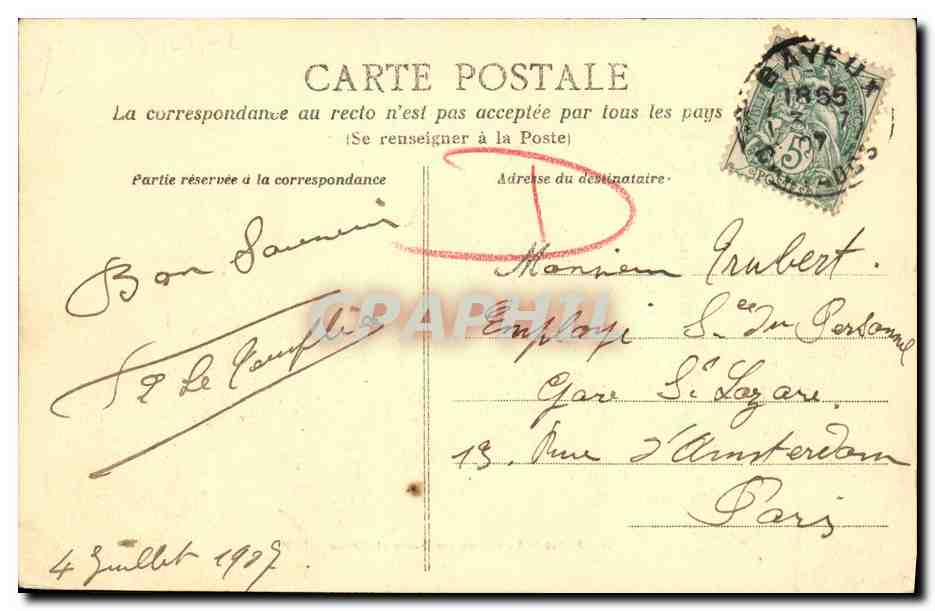 CARTE POSTALE
La correspondance au recto n'est pas acceptée par tous les pays
(Se renseigner à la Poste)
Partie réservée à la correspondance
Adresse du destinataire
BAYEUX
5c
POSTES
D
Bon Souvenir
Le
4 Juillet 1907
Monsieur Trubert.
Employé Sce du Personnel
Gare St Lazare.
13, Rue d'Amsterdam
Paris
CPAPHIL